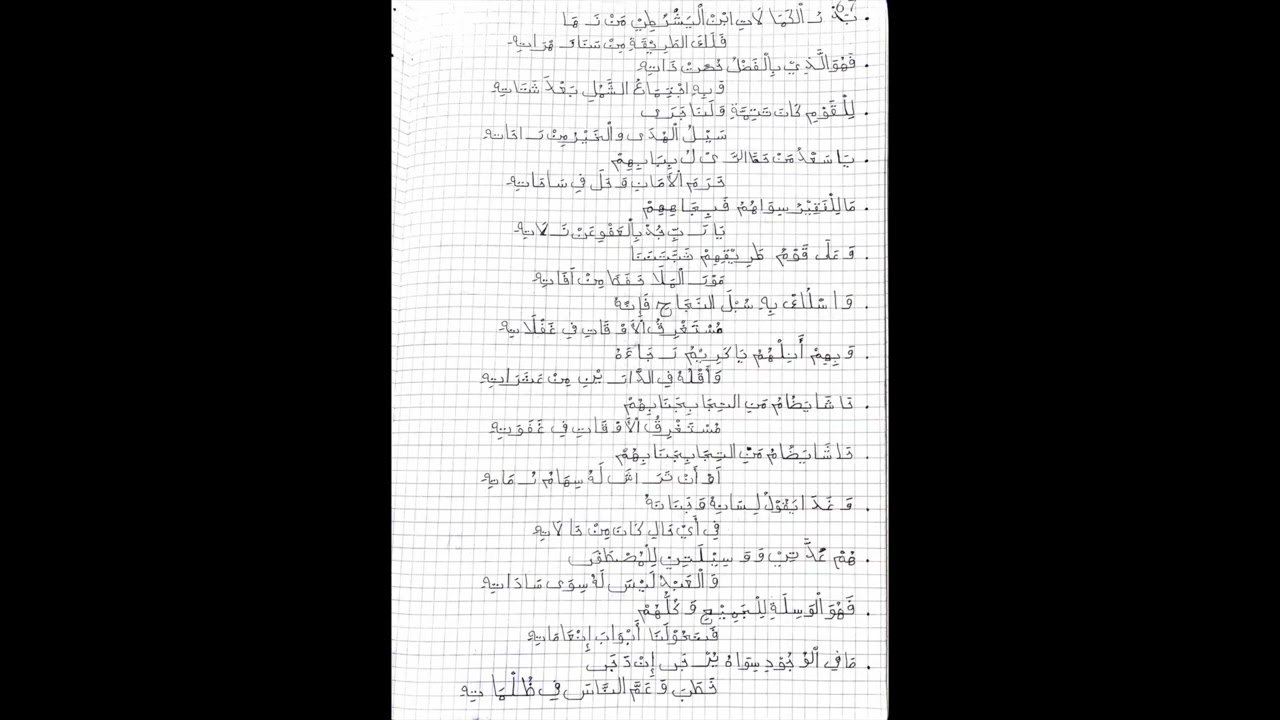 67
بَدْرُ الْكَمَالَاتِ ابْنُ الْيَشْرُطِي مَنْ زَهَا
فَلَكُ الطَّرِيقَةِ مِنْ سَنَا زَهْرَاتِهِ
فَهُوَ الَّذِي بِالْفَضْلِ نُعِتْ ذَاتِهِ
وَبِهِ اجْتِمَاعُ الشَّمْلِ بَعْدَ شَتَاتِهِ
لِلْقَوْمِ كَانَ تَتِمَّةً وَلَنَا جَرَى
سَيْلُ الْهُدَى والْخَيْرُ مِنْ رَاحَاتِهِ
يَا سَعْدُ مَنْ حَطَّ الرِّ بِبَابِهِمْ
حَرَمَ الْأَمَانِ وَحَلَّ فِي سَاحَاتِهِ
مَا لِلْفَقِيْرُ سِوَاهُمُ فَبِجَاهِهِمْ
يَا رَبِّ جُدْ بِالْعَفْوِ عَنْ زَلَاتِهِ
وَعَلَى قَوْمُ طَرِيْقِهِمْ ثَبِّتْنَا
الْمَلَا حِفْظًا مِنْ آفَاتِهِ
وَاسْلُكْ بِهِ سُبْلَ النَّجَاحِ فَإِنَّهُ
مُسْتَغْرِقُ الْأَوْقَاتِ فِي غَفْلَاتِهِ
وَبِهِمْ أَنِلْهُمْ يَا كَرِيْمُ رَجَاءَهُ
وَأَقْلُهُ فِي الدَّارَيْنِ مِنْ عَثَرَاتِهِ
حَاشَا يُضَامُ مَنِ التِجَا بِجَنَابِهِمْ
مُسْتَغْرِقُ الْأَوْقَاتِ فِي غَفَوَتِهِ
حَاشَا يُضَامُ مَنِ التِجَا بِجَنَابِهُمْ
أَوْ أَنْ تَرَاشَ لَهُ سِهَامُ رُمَاتِهِ
وَغَدَا يَقُوْلُ لِسَانِهُ وَجَنَانَهُ
فِي أَيِّ حَالٍ كَانَ مِنْ حَالَاتِهِ
هُمْ عُدَّتِي وَوَسِيْلَتِي لِلْمُصْطَفَى
وَالْعَبْدُ لَيْسَ لَهُ سِوَى سَادَاتِهِ
فَهُوَ الْوَسِيْلَةِ لِلْجَمِيْعِ وَكُلُّهُمْ
أَبْوَابَ إِنْعَامَاتِهِ
مَا فِي الْوُجُوْدِ سِوَاهُ يُرْجَى إِنْ دَجَى
خَطْبَ وَعَمَّ النَّاسَ فِي ظُلْمَاتِهِ